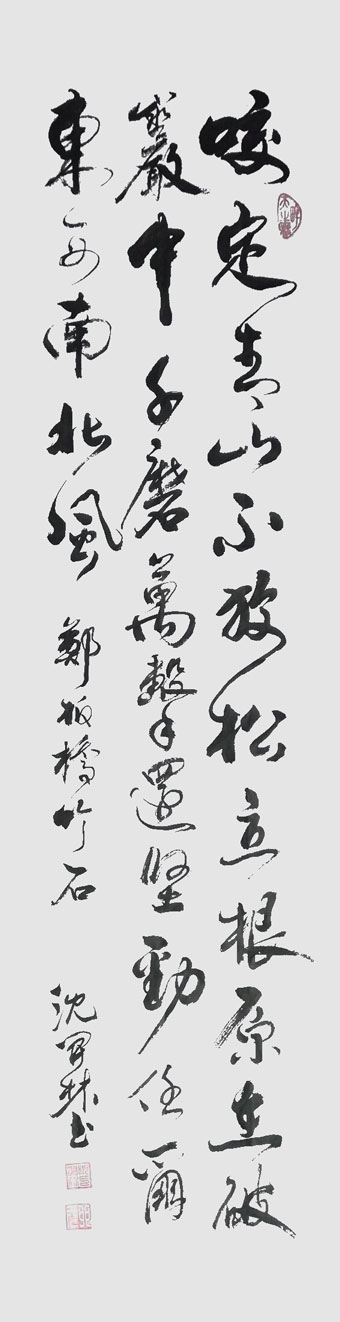 咬定青山不放松立根原在破
巖中千磨萬擊還堅勁任爾
東西南北風 鄭板橋竹石 沈林书